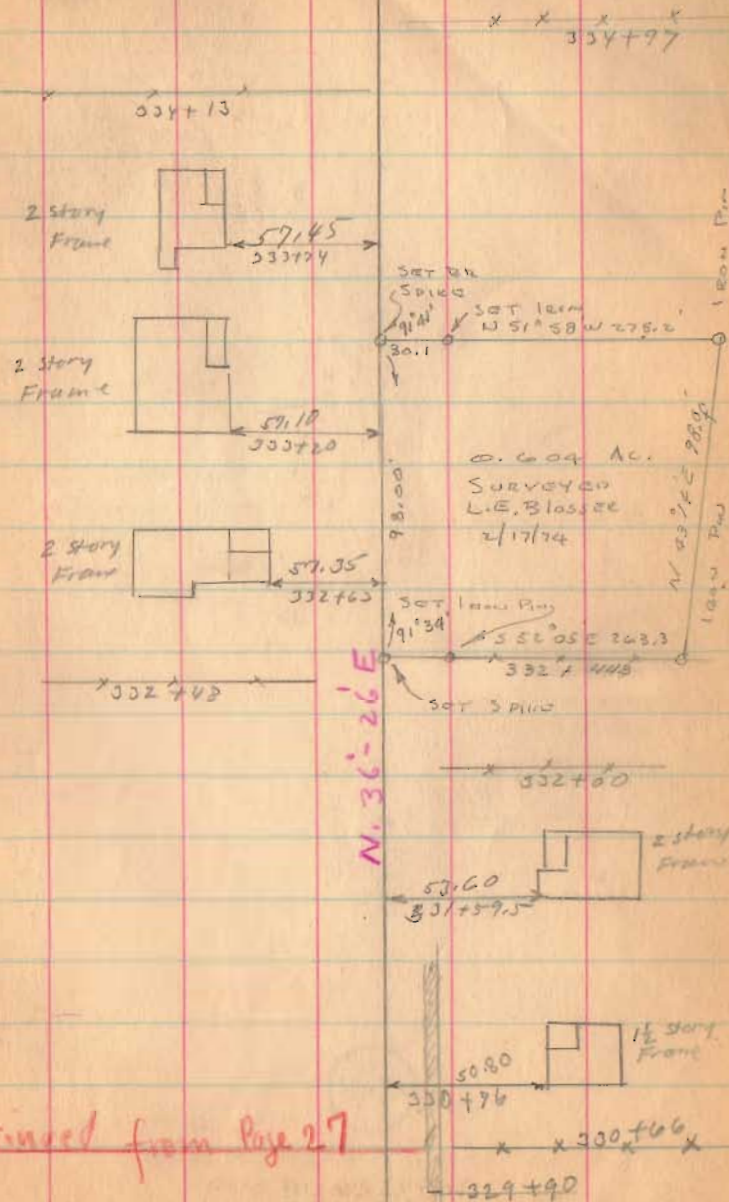 334+97
334+13
2 story
Frame
57.45
333+74
SET RR
SPIKE
91°41'
SET IRON
N 51° 58 W 275.2'
IRON PIN
30.1
2 story
Frame
57.10
333+20
98.00'
0.604 AC.
SURVEYED
L.E. BLOSSER
2/17/74
IRON PIN
2 story
Frame
57.35
332+63
SET IRON PIN
91°39'
S 52° 05 E 263.3
332+448
SET SPIKE
332+48
N. 36°-26' E
332+00
2 story
Frame
53.60
331+59.5
1½ story
Frame
50.80
330+96
tinued from Page 27
330+66
329+90